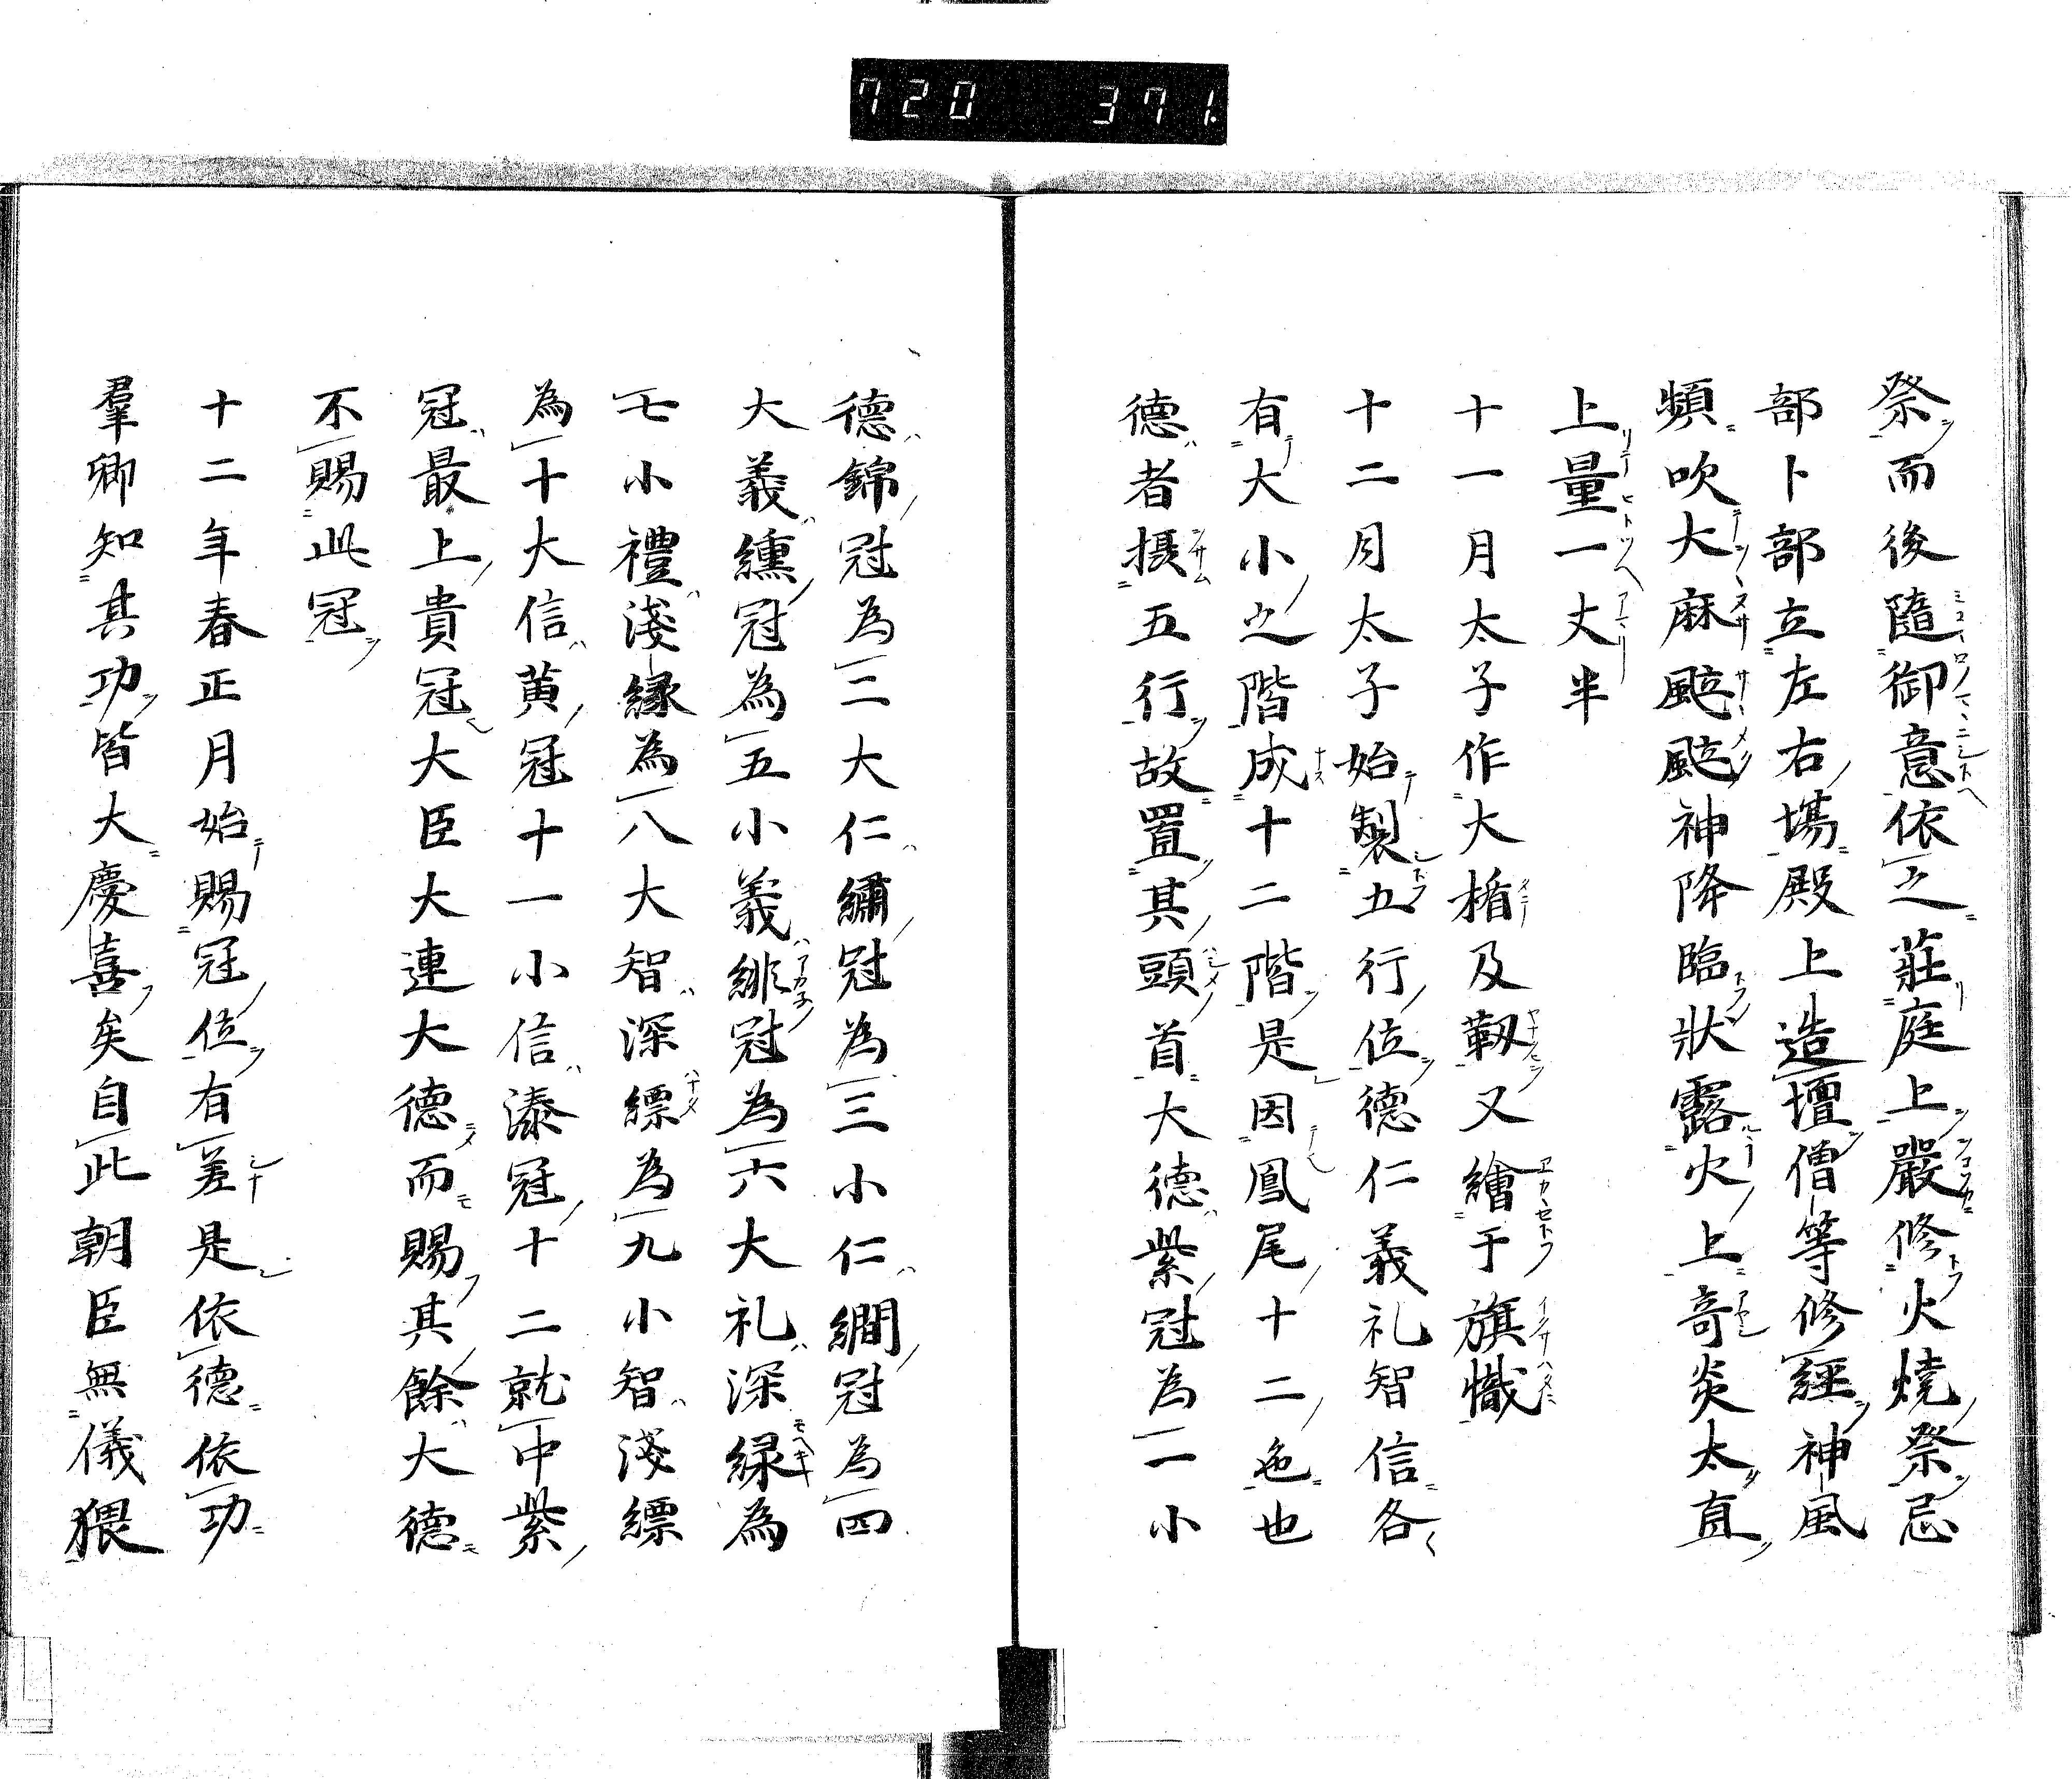 720 371.
祭而後隨御意依之莊庭上嚴修火燒祭忌
部卜部立左右場殿上造壇僧等修經神風
頻吹大麻颯颯神降臨狀露火上奇炎太直
上量一丈半
十一月太子作大楯及靫又繪于旗幟
十二月太子始製五行位德仁義礼智信各
有大小之階成十二階是因鳳尾十二色也
德者摂五行故置其頭首大德紫冠為一小
德錦冠為二大仁繡冠為三小仁繝冠為四
大義纁冠為五小義緋冠為六大礼深緑為
七小禮淺縁為八大智深縹為九小智淺縹
為十大信黄冠十一小信漆冠十二就中紫
冠最上貴冠大臣大連大德而賜其餘大德
不賜此冠
十二年春正月始賜冠位有差是依德依功
羣卿知其功皆大慶喜矣自此朝臣無儀猥